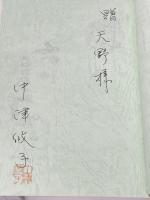 贈
天野様
中津攸子